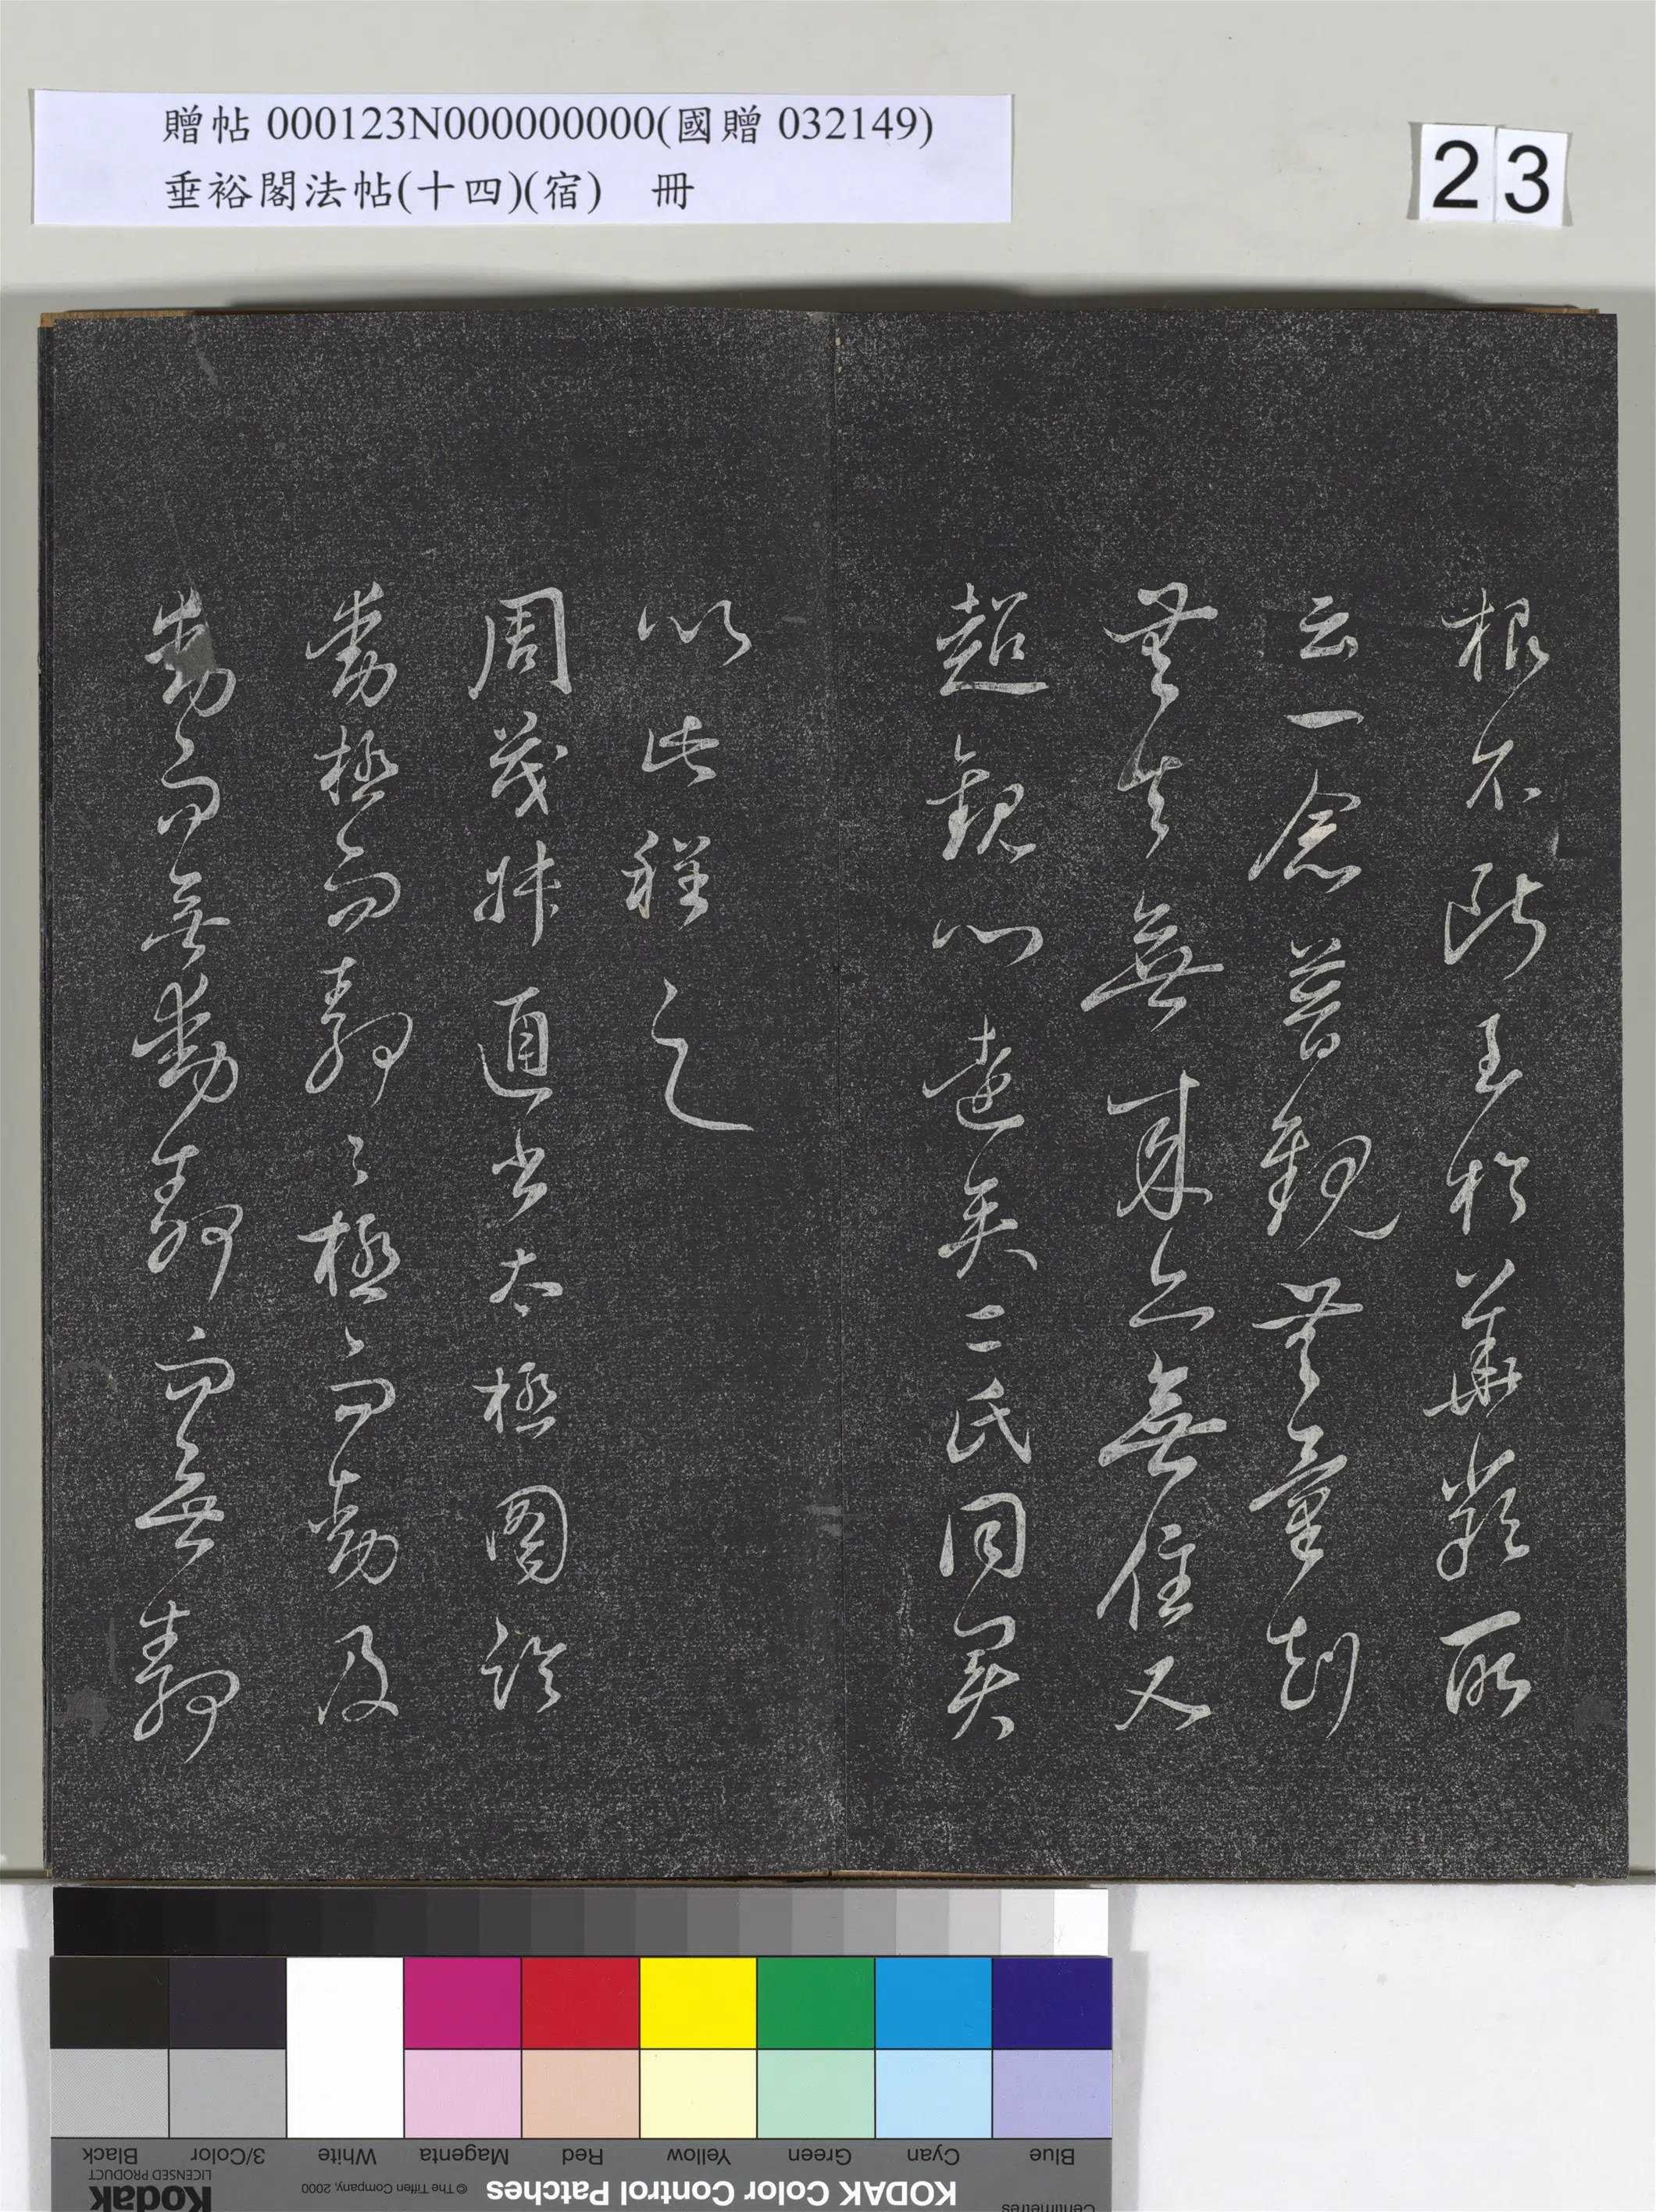 贈帖 000123N000000000(國贈 032149)
垂裕閣法帖(十四)(宿) 冊
23
根不斷至於華嚴所
云一念普觀無量劫
無去無來亦無住又
超觀心遠矣二氏同異
以此程之
周茂叔通書太極圖說
動極而靜〻極而動及
動而無動靜而無靜
Black
3/Color
White
Magenta
Red
Yellow
Green
Cyan
Blue
Kodak
LICENSED PRODUCT
© The Tiffen Company, 2000
KODAK Color Control Patches
Centimetres